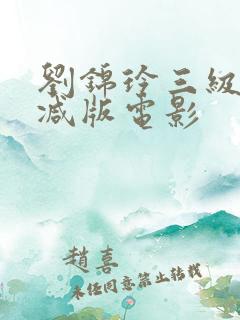 劉錦玲三級
減版電影
趙喜
未经同意禁止转载